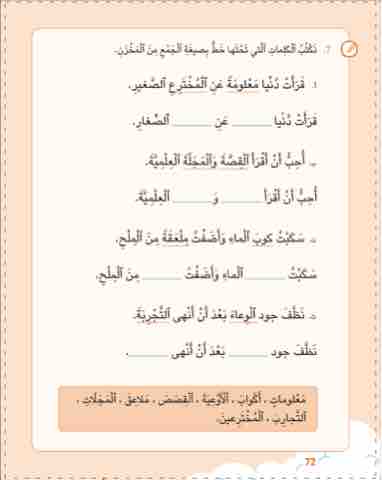 7. نَكْتُبُ ٱلْكَلِماتِ ٱلَّتي تَحْتَها خَطٌّ بِصيغَةِ ٱلْجَمْعِ مِنَ ٱلْمَخْزَنِ.
أ. قَرَأَتْ دُنْيا مَعْلومَةً عَنِ ٱلْمُخْتَرِعِ ٱلصَّغيرِ.
قَرَأَتْ دُنْيا ________ عَنِ ________ ٱلصِّغارِ.
ب. أُحِبُّ أَنْ أَقْرَأَ ٱلْقِصَّةَ وَٱلْمَجَلَّةَ ٱلْعِلْمِيَّةَ.
أُحِبُّ أَنْ أَقْرَأَ ________ وَ ________ ٱلْعِلْمِيَّةَ.
ت. سَكَبْتُ كوبَ ٱلْماءِ وَأَضَفْتُ مِلْعَقَةً مِنَ ٱلْمِلْحِ.
سَكَبْتُ ________ ٱلْماءِ وَأَضَفْتُ ________ مِنَ ٱلْمِلْحِ.
ث. نَظَّفَ جود ٱلْوِعاءَ بَعْدَ أَنْ أَنْهى ٱلتَّجْرِبَةَ.
نَظَّفَ جود ________ بَعْدَ أَنْ أَنْهى ________.
مَعْلوماتٍ ، أَكْوابَ ، ٱلْأَوْعِيَةَ ، ٱلْقِصَصَ ، مَلاعِقَ ، ٱلْمَجَلّاتِ ،
ٱلتَّجارِبَ ، ٱلْمُخْتَرِعينَ.
72